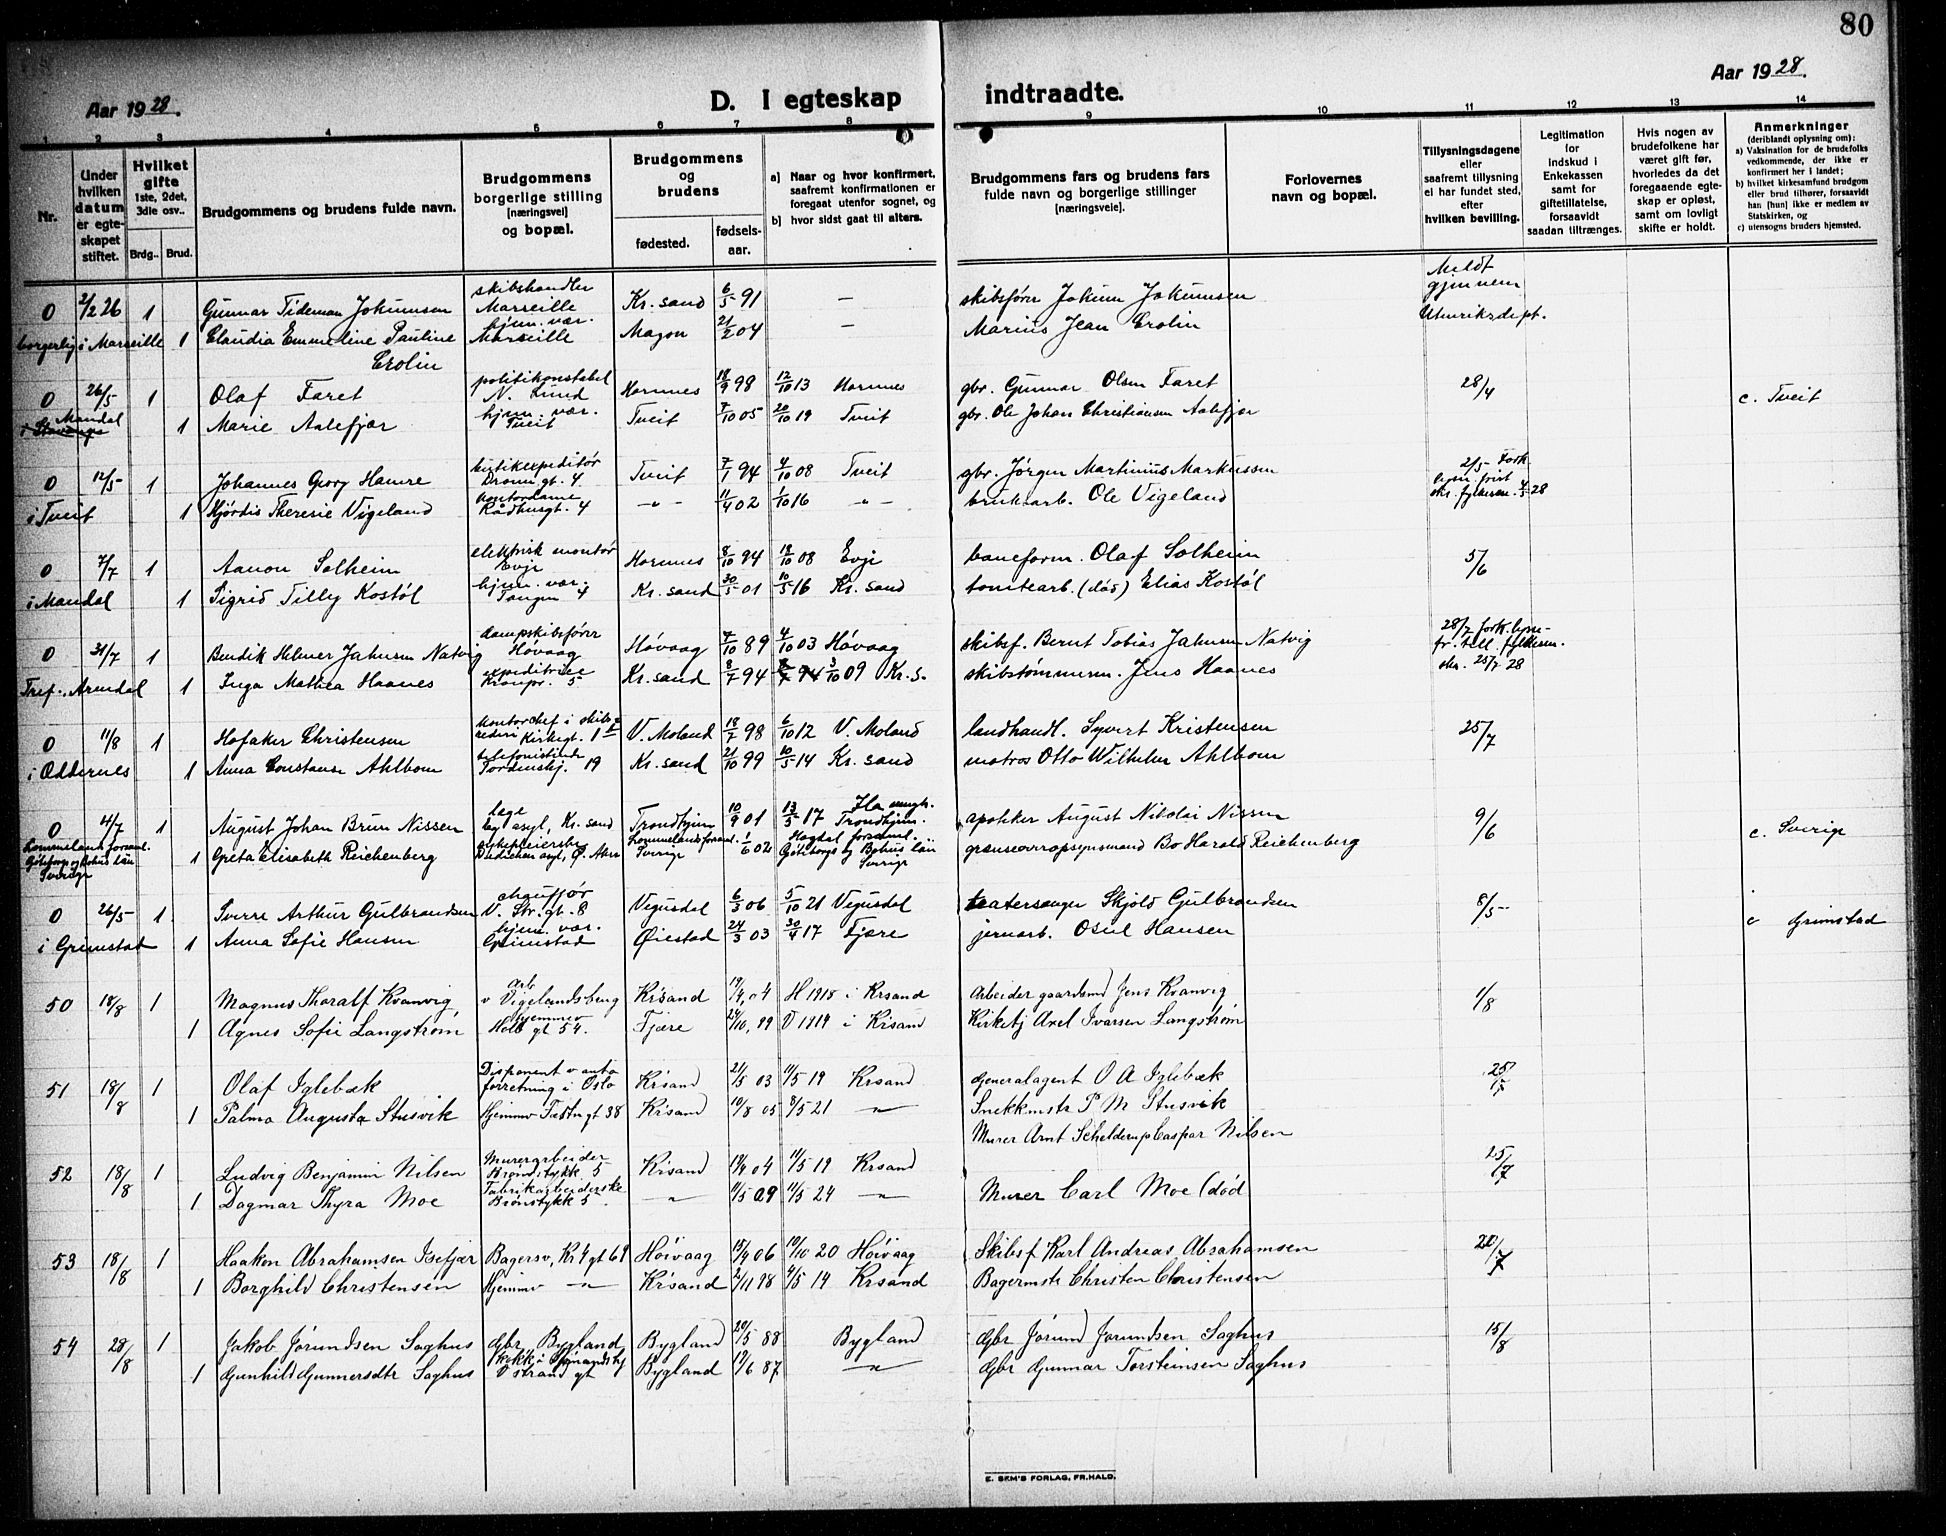 80
Aar 1928.
D. I egteskap indtraadte.
Aar 1928.
1 2 3 4 5 6 7 8 9 10 11 12 13 14
Nr.
Under hvilken datum er egteskapet stiftet.
Hvilket gifte 1ste, 2det, 3die osv..
Brdg.. Brud.
Brudgommens og brudens fulde navn.
Brudgommens borgerlige stilling [næringsvei] og bopæl.
Brudgommens og brudens
fødested. fødselsaar.
a) Naar og hvor konfirmert, saafremt konfirmationen er foregaat utenfor sognet, og
b) hvor sidst gaat til alters.
Brudgommens fars og brudens fars fulde navn og borgerlige stillinger [næringsveie].
Forlovernes navn og bopæl.
Tillysningsdagene eller saafremt tillysning ei har fundet sted, efter hvilken bevilling.
Legitimation for indskud i Enkekassen samt for giftetillatelse, forsaavidt saadan tiltrænges.
Hvis nogen av brudefolkene har været gift før, hvorledes da det foregaaende egteskap er opløst, samt om lovligt skifte er holdt.
Anmerkninger (deriblandt oplysning om):
a) Vaksination for de brudefolks vedkommende, der ikke er konfirmert her i landet;
b) hvilket kirkesamfund brudgom eller brud tilhører, forsaavidt han (hun) ikke er medlem av Statskirken, og
c) utensogns bruders hjemsted.
0 2/2 26 1 Gunnar Tideman Jokumsen skibshandler Marseille Kr.sand 6/5 91 — skibsfører Jokum Jokumsen Meldt gjennem Utenriksdept.
borgerlig i Marseille 1 Claudia Emmeline Pauline Crolin hjem. vær. Marseille Magon 21/2 04 — Marius Jean Crolin
0 26/5 1 Olaf Faret politikonstabel N. Lund Hornnes 18/9 98 12/10 13 Hornnes gbr. Gunnar Olsen Faret 28/4
Mandal 1 Marie Aalefjær hjem. vær. Tveit Tveit 7/10 05 20/10 19 Tveit gbr. Ole Johan Christiansen Aalefjær c. Tveit
0 12/5 1 Johannes Georg Hamre butikexpeditør Dronn.gt. 4 Tveit 7/1 94 4/10 08 Tveit gbr. Jørgen Martinius Markussen 2/5 Fork.
i Tveit 1 Hjørdis Theresie Vigeland kontordame Rådhusgt. 4 -"- 11/4 02 1/10 16 -"- bruksarb. Ole Vigeland
0 7/7 1 Aanon Solheim elektrisk montør Evje Hornnes 8/10 94 18/10 08 Evje baneform. Olaf Solheim 5/6
i Mandal 1 Sigrid Tilly Kostøl hjem. vær. Tangen 4 Kr.sand 30/5 01 10/5 16 Kr.sand tomtearb. (død) Elias Kostøl
0 31/7 1 Bendik Helmer Jahnsen Natvig dampskibsfører Høvaag Høvaag 7/10 89 4/10 03 Høvaag skibsf. Bernt Tobias Jahnsen Natvig 28/7 fork. lysn.-
fr. till. fylkesm.
skr. 25/7 28
Tref. Arendal 1 Inga Mathea Haanes expeditrice Kronpr. 5 Kr.sand 8/7 94 3/10 09 Kr.s. skibstømmerm. Jens Haanes
0 11/8 1 Hofaker Christensen kontorchef i skibsrederi Kirkegt. 1 V. Moland 18/7 98 6/10 12 V. Moland landhandl. Syvert Kristensen 25/7
i Oddernes 1 Anna Constanse Ahlbom telefonistinde Tordenskj. 19 Kr.sand 21/10 99 10/5 14 Kr.sand matros Otto Wilhelm Ahlbom
0 4/7 1 August Johan Brun Nissen læge Eg asyl, Kr.sand Trondhjem 10/9 01 13/5 17 Ila mngh. Trondhjem. apoteker August Nikolai Nissen 9/6
Lommelands forsaml. Göteborgs og Bohus län Sverige 1 Greta Elisabeth Reichenberg sykepleierske Dedichens asyl, Ø. Aker Lommelands forsaml. Sverige 1/6 02 Hogdal forsaml. Göteborgs og Bohus län Sverige grænseoveropsynsmand Bo Harald Reichenberg c. Sverige
0 26/5 1 Sverre Arthur Gulbrandsen chauffør V. Str.gt. 8 Vegusdal 6/3 06 5/10 21 Vegusdal teatersanger Skjold Gulbrandsen 8/5
i Grimstad 1 Anna Sofie Hansen hjem. vær. Grimstad Øiestad 24/3 03 30/4 17 Fjære jernarb. Osul Hansen c Grimstad
50 18/8 1 Magnus Thoralf Kvanvig arb v Vigelandsbrug Kr'sand 19/4, 04 H 1918 i Krsand Arbeider gaardsmd Jens Kvanvig 1/8
1 Agnes Sofie Langstrøm hjemmev Holb gt 54. Fjære 24/10, 99 V 1914 i Krsand Kirketj Axel Ivarsen Langstrøm
51 18/8 1 Olaf Iglebæk Disponent v auto forretning i Oslo Kr'sand 21/5 03 11/5 19 Krsand Generalagent O A Iglebæk 25/7
1 Palma Augusta Stusvik Hjemmv Festn gt 38 Kr'sand 10/8 05 8/5 21 —"— Snekkmstr P M Stusvik
52 18/8 1 Ludvig Benjamin Nilsen Murerarbeider Brønstykk 5 Kr'sand 19/9 04 11/5 19 Krsand Murer Arnt Schelderup Caspar Nilsen 25/7
1 Dagmar Thyra Moe Fabrikarbeiderske Brønstykk 5 —"— 11/5 09 11/5 24 —"— Murer Carl Moe (død
53 18/8 1 Haakon Abrahamsen Isefjær Bagersv, Kr 4 gt 69 Høivaag 15/9 06 10/10 20 Høivaag Skibsf Karl Andreas Abrahamsen 20/7
1 Borghild Christensen Hjemmv —"— Kr'sand 2/11 98 4/5 14 Krsand Bagermstr Christen Christensen
54 28/8 1 Jakob Jørundsen Saghus Gbr Bygland Bygland 20/5 88 Bygland Gbr Jørund Jørundsen Saghus 15/8
1 Gunhild Gunnersdtr Saghus V strand gt Bygland 19/6 87 —"— Gbr Gunnar Torsteinsen Saghus
E. SEM'S FORLAG, FR.HALD.